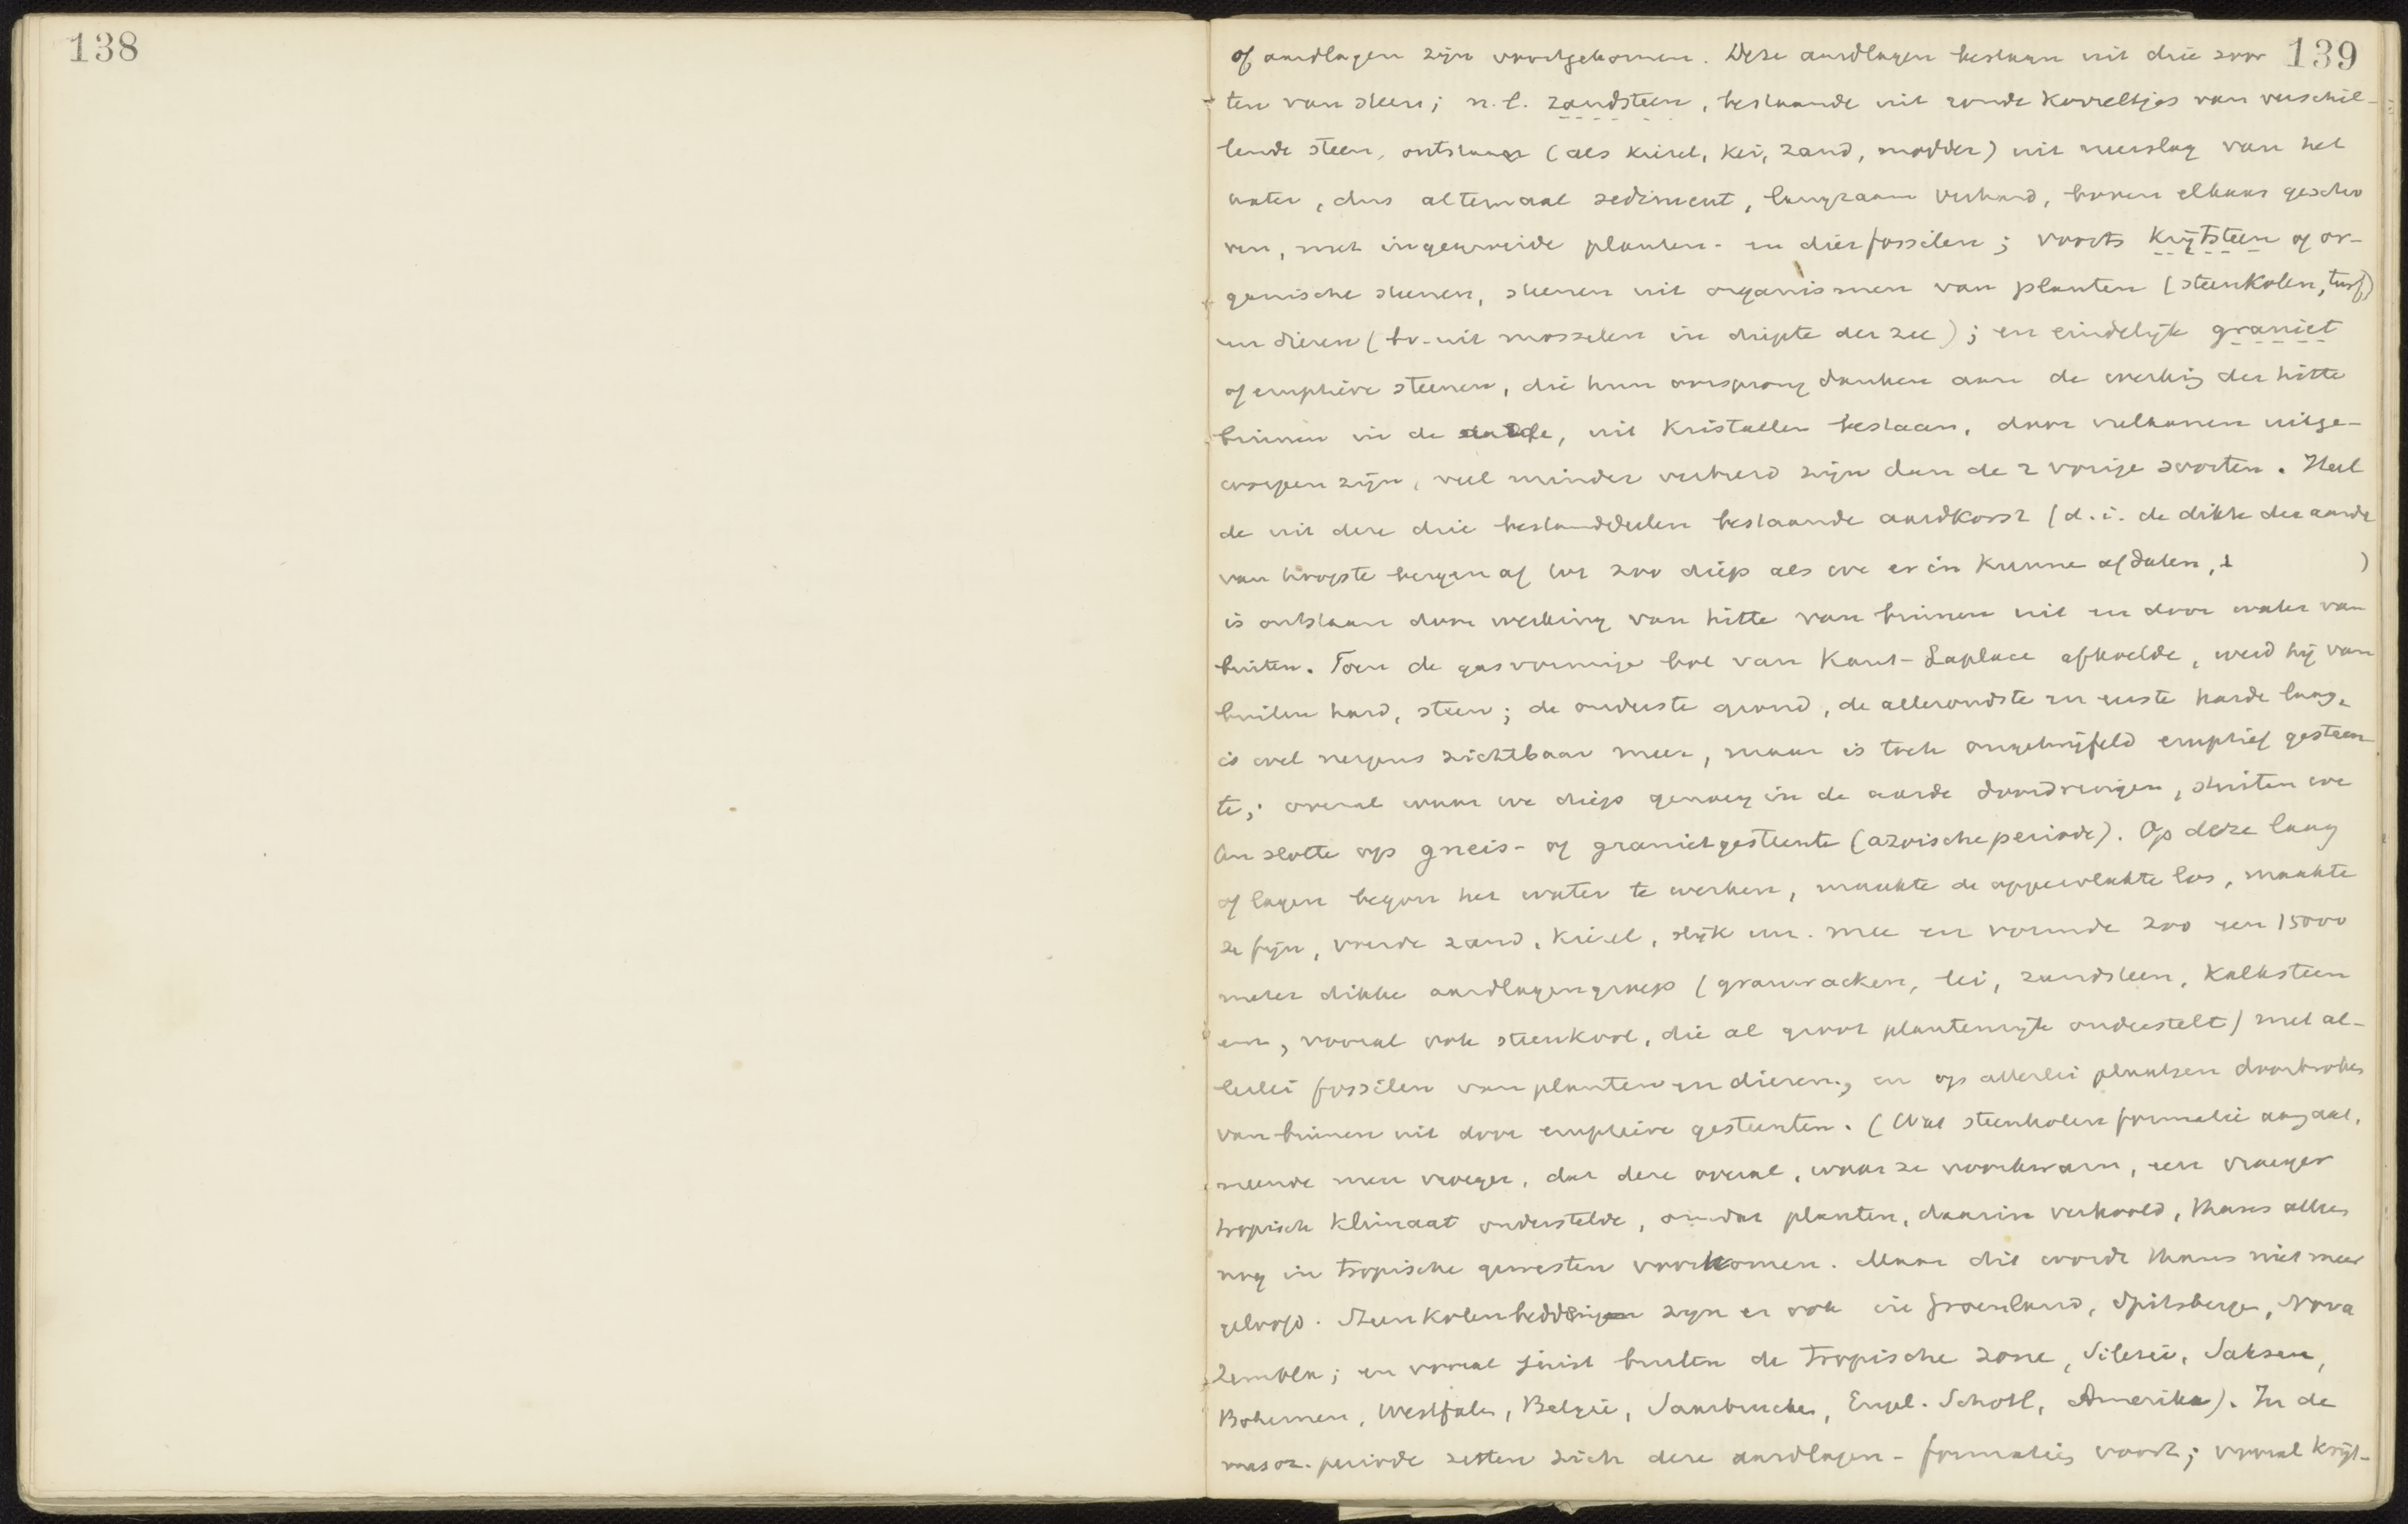 138
139
of aardlagen zijn voortgekomen. Deze aardlagen bestaan uit drie soor
ten van steen; n.l. zandsteen, bestaande uit ronde korreltjes van verschil-
lende steen, ontstaan (als kiezel, kei, zand, modder) uit neerslag van het
water, dus altemaal sediment, langzaam verhard, boven elkaar gescho
ven, met ingewreide planten- en dierfossilen; voorts krijtsteen of or-
ganische steenen, steenen uit organismen van planten (steenkolen, turf)
en dieren (bv. uit mosselen in diepte der zee); en eindelijk graniet
of eruptieve steenen, die hun oorsprong danken aan de werking der hitte
binnen in de aarde, uit kristallen bestaan, door vulkanen uitge-
worpen zijn, veel minder verbreid zijn dan de 2 vorige soorten. Heel
de uit deze drie bestanddeelen bestaande aardkorst (d.i. de dikte der aarde
van hoogste bergen af tot zoo diep als we er in kunne afdalen, )
is ontstaan door werking van hitte van binnen uit en door water van
buiten. Toen de gasvormige bol van Kant-Laplace afkoelde, werd hij van
buiten hard, steen; de onderste grond, de alleroudste en eerste harde laag,
is wel nergens zichtbaar meer, maar is toch ongetwijfeld eruptief gesteen
te; overal waar we diep genoeg in de aarde doordringen, stuiten we
ten slotte op gneis- of granietgesteente (azoische periode). Op deze laag
of lagen begon het water te werken, maakte de oppervlakte los, maakte
ze fijn, voerde zand, kiezel, slijk enz. mee en vormde zoo een 15000
meter dikke aardlagengroep (grauwacken, lei, zandsteen, kalksteen
enz, vooral ook steenkool, die al groot plantenrijk onderstelt) met al-
lerlei fossilen van planten en dieren, en op allerlei plaatsen doorbroken
van binnen uit door eruptieve gesteenten. (Wat steenkolenformatie aangaat,
meende men vroeger, dat deze overal, waar ze voorkwam, een vroeger
tropisch klimaat onderstelde, omdat planten, daarin verkoold, thans alleen
nog in tropische gewesten voorkomen. Maar dit wordt thans niet meer
geloofd. Steenkolenbeddingen zijn er ook in Groenland, Spitsbergen, Nova
Zembla; en vooral juist buiten de tropische zone, Silezië, Saksen,
Bohemen, Westfalen, België, Saarbrucken, Engel. Schotl, Amerika). In de
mesoz. periode zetten zich deze aardlagen-formaties voort; vooral krijt-